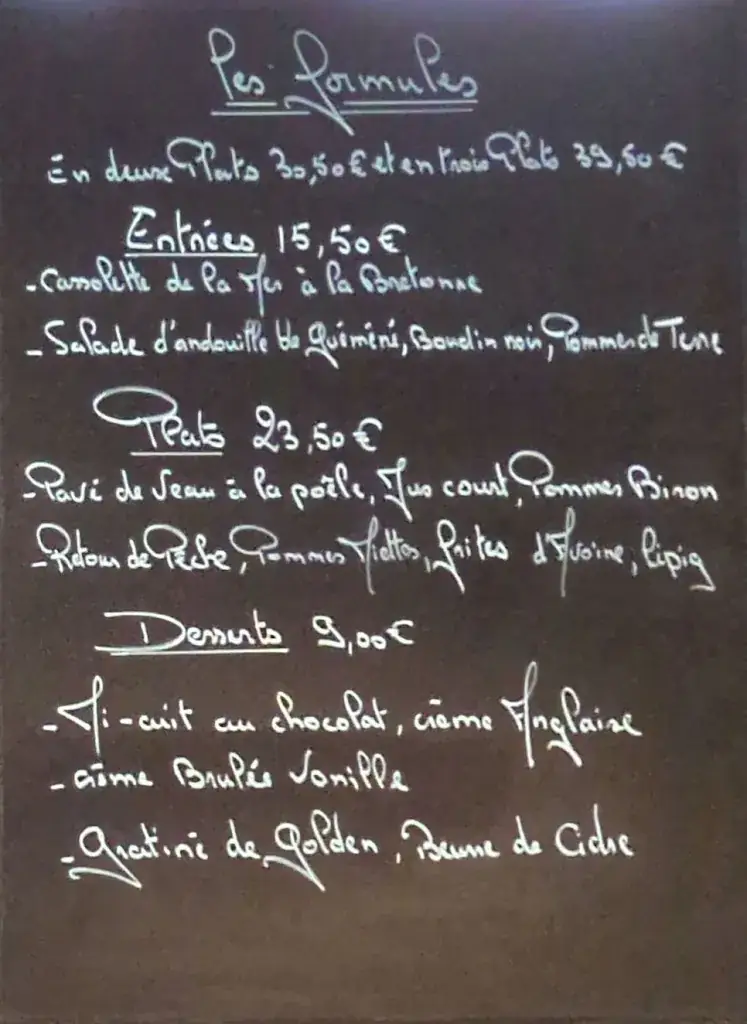 Les formules
En deux Plats 30,50€ et en trois Plats 39,50€
Entrées 15,50€
- Cassolette de la Mer à la Bretonne
- Salade d'andouille de Guémené, Boudin noir, Pommes de Terre
Plats 23,50€
- Pavé de Veau à la poêle, Jus court, Pommes
- Retour de Pêche, Pommes Miettes, frites d'Ivoine, lipig
Desserts 9,00€
- Mi-cuit au chocolat, crème Anglaise
- crème Brulée Vanille
- gratiné de golden, Beurre de Cidre